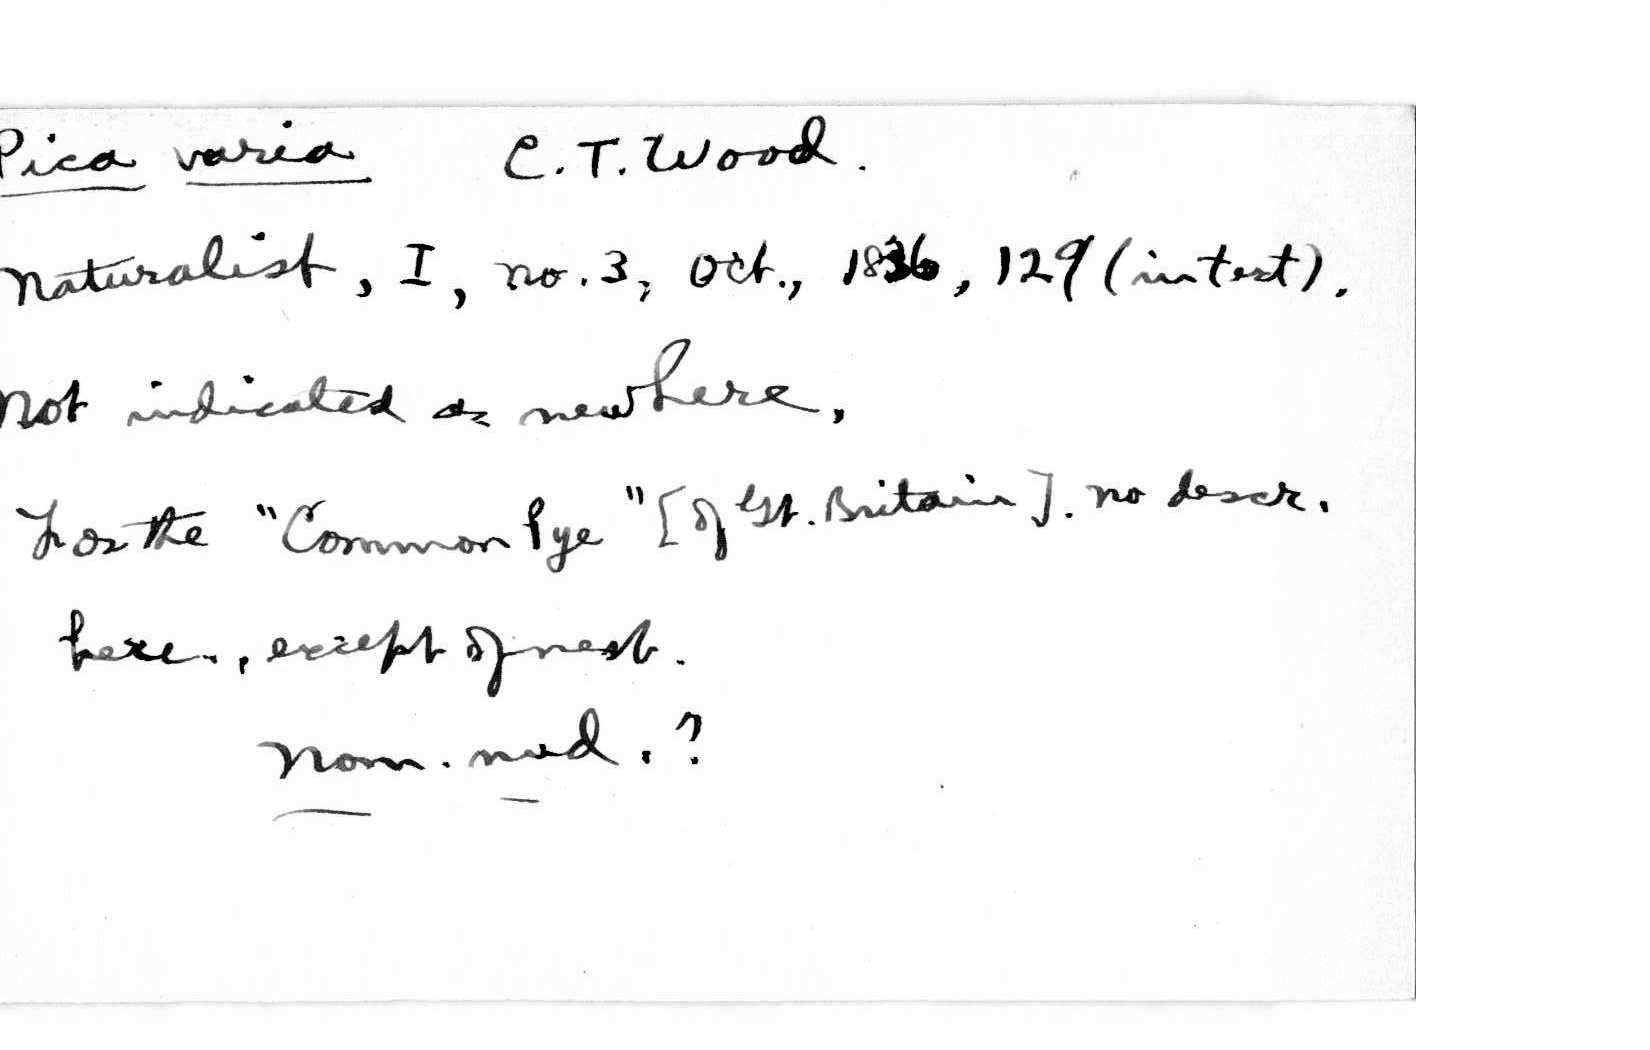 Pica varia C. T. Wood.
Naturalist, I, no. 3, Oct., 1836, 129 (in text).
Not indicated as new here,
For the "Common Pye" [of Gt. Britain]. no descr.
here., except of nest.
Nom. nud.?